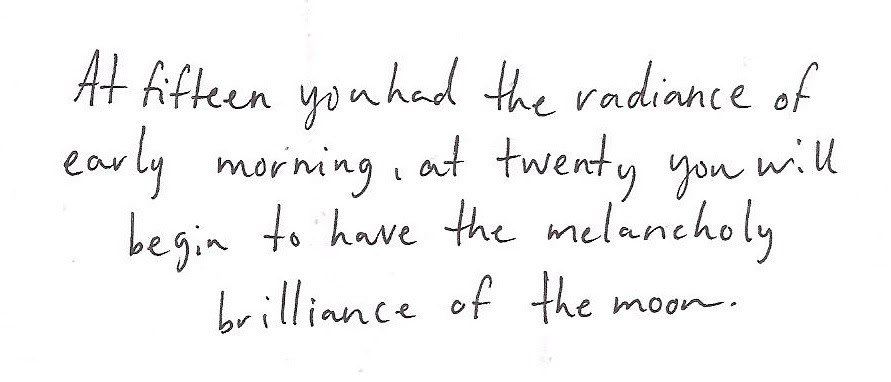 At fifteen you had the radiance of
early morning, at twenty you will
begin to have the melancholy
brilliance of the moon.